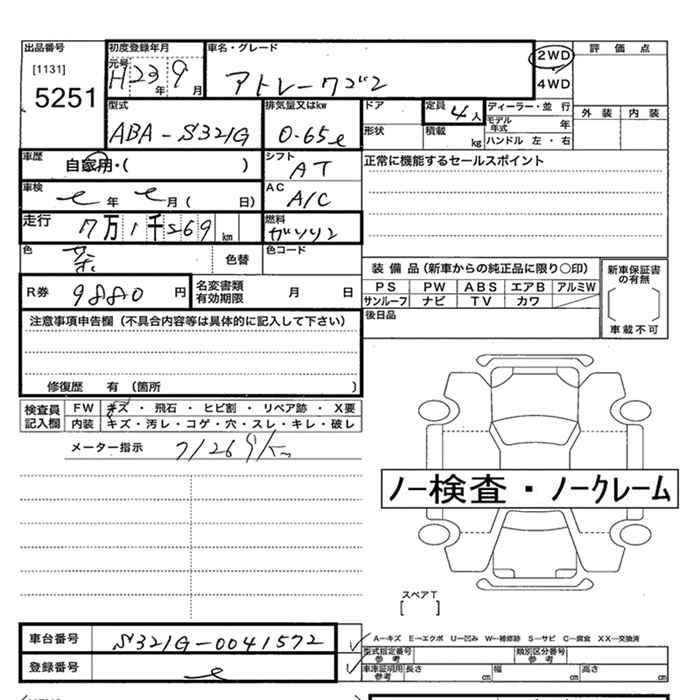 出品番号 初度登録年月 車名・グレード 2WD 評価点
[1131] 元号 H23年 9月 アトレーワゴン 4WD
5251 型式 排気量又はkw ドア 定員 4人 ディーラー・並行 外装 内装
ABA-S321G 0.65ℓ 形状 積載 kg モデル年式 年
ハンドル 左・右
車歴 自家用・( ) シフト AT 正常に機能するセールスポイント
車検 年 月( 日) AC A/C
走行 7万1千269km 燃料 ガソリン
色 茶 色替 色コード
装備品(新車からの純正品に限り○印) 新車保証書の有無
R券 9880円 名変書類有効期限 月 日 PS PW ABS エアB アルミW
サンルーフ ナビ TV カワ
注意事項申告欄(不具合内容等は具体的に記入して下さい) 後日品 車載不可
修復歴 有(箇所 )
検査員記入欄 FW キズ・飛石・ヒビ割・リペア跡・X要
内装 キズ・汚レ・コゲ・穴・スレ・キレ・破レ
メーター指示 71269km
ノー検査・ノークレーム
スペアT
[ ]
車台番号 S321G-0041572 A-キズ E-エクボ U-凹み W-補修跡 S-サビ C-腐食 XX-交換済
型式指定番号 参考 類別区分番号 参考
登録番号 車庫証明用 参考 長さ cm 幅 cm 高さ cm